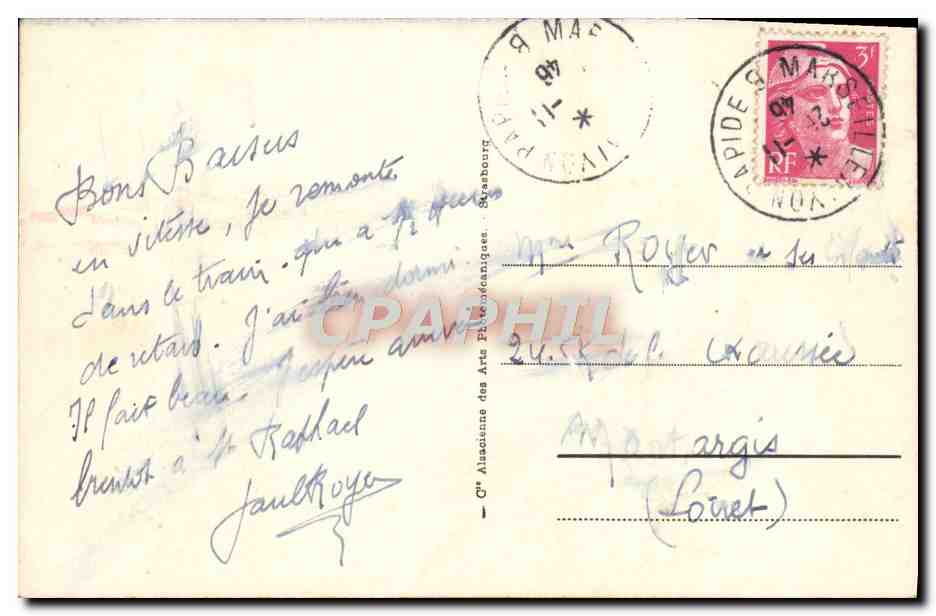 Bons Baisers
en vitesse, je remonte
dans le train. qui a heures
de retard. J'ai bien dormi.
Il fait beau. J'espère arriver
bientôt à St Raphael
Paul Royer
Cie Alsacienne des Arts Photomécaniques. Strasbourg
B MAR
46
-11
*
RAPIDE B MARSEILLE
46
-11
*
3F
RF
Mme Royer
Chaussée
Montargis
(Loiret)
CPAPHIL